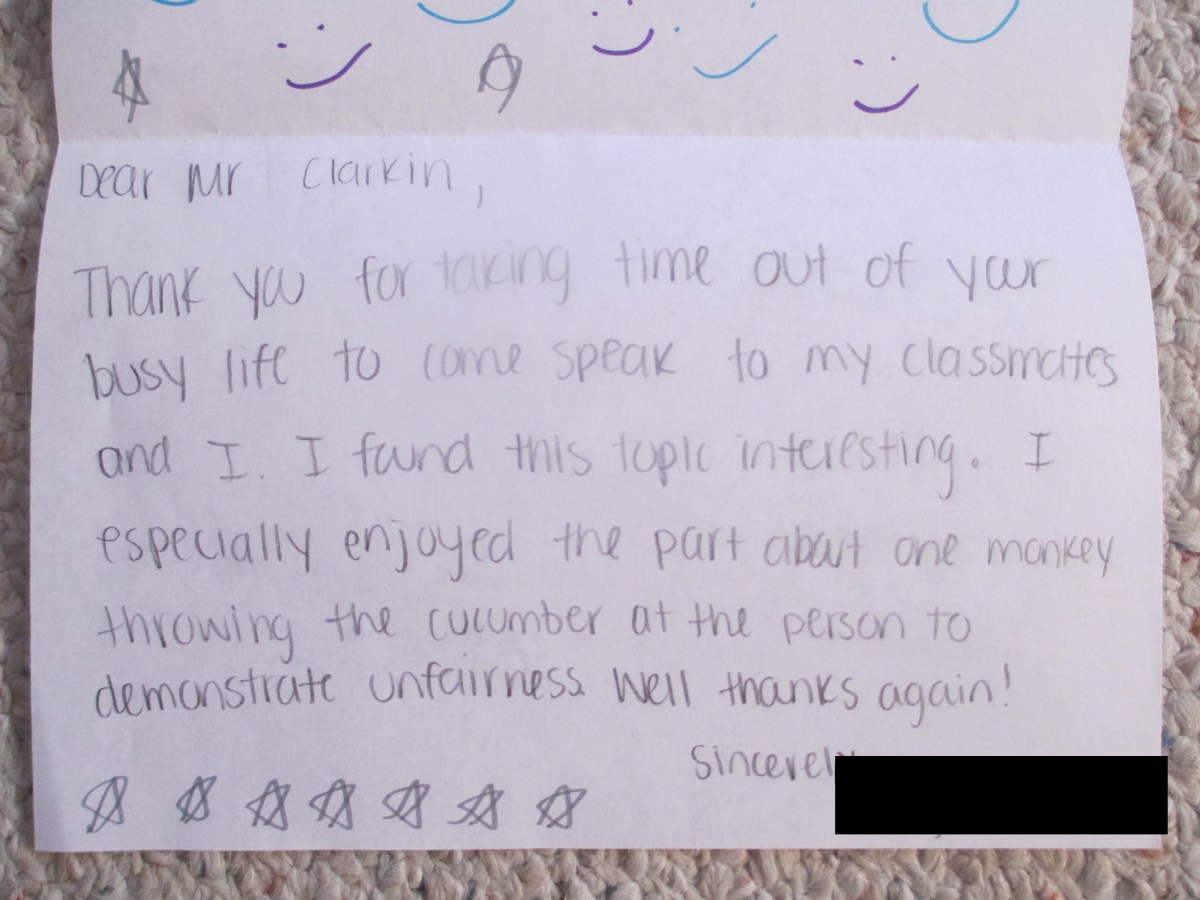 Dear Mr Clarkin,
Thank you for taking time out of your
busy life to come speak to my classmates
and I. I found this topic interesting. I
especially enjoyed the part about one monkey
throwing the cucumber at the person to
demonstrate unfairness. Well thanks again!
Sincerely